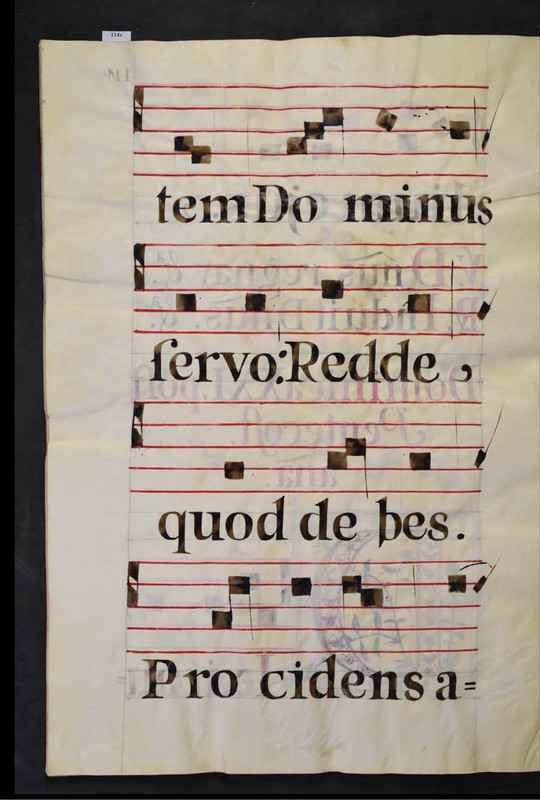 114v
tem Do minus
ſervo: Redde,
quod de bes.
Pro cidens a=